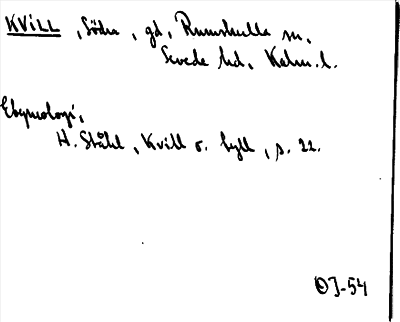 KVILL, Södra, gd, Rumskulla sn,
Sevede hd, Kalm. l.
Etymologi,
H. Ståhl, Kvill o. hyll, s. 22.
OJ-54